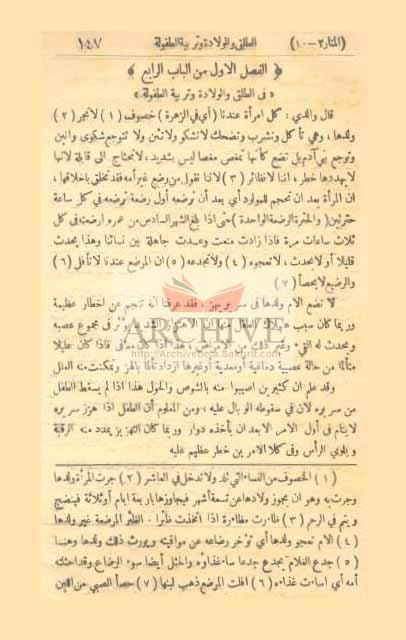 (المنار٢-١٠) الطلق والولادة وتربية الطفولة ١٤٧
﴿ الفصل الاول من الباب الرابع ﴾
« في الطلق والولادة وتربية الطفولة »
قال والدي : كل امرأة عندنا (أي في الزهرة) خصوف (١) لا تجر (٢)
ولدها ، وهي تأكل وتشرب وتضحك لا تشكو ولا تئن ولا تتوجع شكوى وانين
وتوجع بني آدم بل تضع كأنها تمغص مغصا ليس بشديد ، لا تحتاج الى قابلة لانها
لا يهددها خطر ، اننا لا نظائر (٣) لاننا نقول من رضع غير أمه فقد تخلق باخلاقها ،
ان المرأة بعد ان تحجم للمولود أي بعد أن ترضعه أول رضعة ترضعه في كل ساعة
مرتين ( والمرة الرضعة الواحدة ) حتى اذا بلغ الشهر السادس من عمره ارضعته في كل
ثلاث ساعات مرة فاذا زادت منعت وعدت جاهلة بين نسائنا وهذا يحدث
قليلا أو لا يحدث ، لا تعجوه (٤) ولا تجدعه (٥) ان المرضع عندنا لا تأفل (٦)
والرضيع لا يحصأ (٧)
لا تضع الام ولدها في سرير يهز ، فقد عرفنا انه تنجم عن اخطار عظيمة
وربما كان سبب هلاك الطفل منها ان الاهتزاز الشديد يؤثر في مجموع عصبه
ويحدث له التيء وغير ذلك من الامراض ، هذا اذا كان معافى فاذا كان عليلا
متألما من حالة عصبية دماغية أو معدية أو غيرها ازداد تألما بالهز وتمكنت منه العلل
وقد علم ان كثيرين اصيبوا منه بالشوص والحول هذا اذا لم يسقط الطفل
من سريره لان في سقوطه الوبال عليه ، ومن المعلوم أن الطفل اذا هزز سريره
لا ينام في أول الامر الا بعد ان يأخذه دوار وربما كان التهزيز يمدد منه الرقبة
ويلوي الرأس وفي كلا الامرين خطر عظيم عليه
(١) الخصوف من النساء التي تلد ولا تدخل في العاشر (٢) جرت المرأة ولدها
وجرت به وهو ان يجوز ولادها عن تسعة أشهر فيجاوزها باربعة ايام أو ثلاثة فينضج
ويتم في الرحم (٣) ظاءرت مظاءرة اذا اتخذت ظئرا . الظئر المرضعة غير ولدها
(٤) الام تعجو ولدها أي تؤخر رضاعه عن مواقيته ويورث ذلك ولدها وهنا
(٥) جدع الغلام يجدع جدعا ساء غذاؤه والمحثل أيضا سوء الرضاع وقد احثلته
أمه أي اساءت غذاءه (٦) افلت المرضع ذهب لبنها (٧) حصأ الصبي من اللبن
ARCHIVE
http://Archivebeta.Sakhrit.com